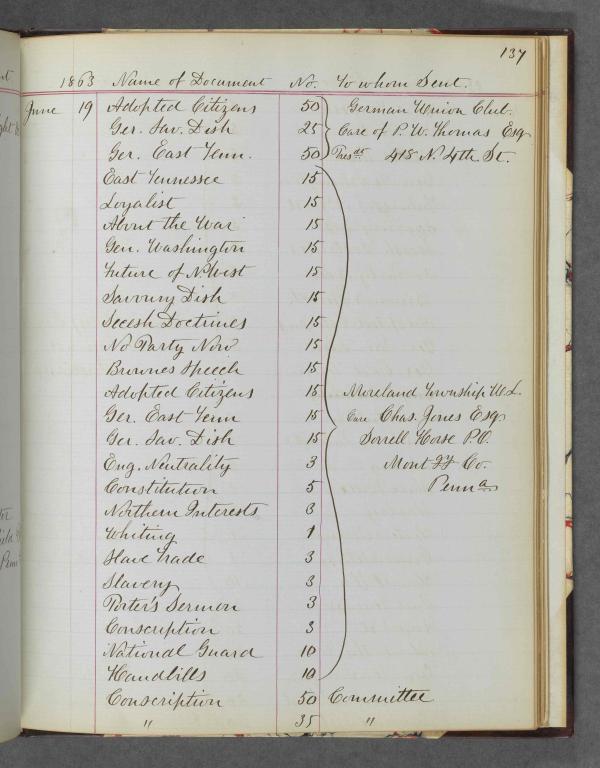 137
1863 Name of Document No. To whom Sent.
June 19 Adopted Citizens 50 German Union Club.
Ger. Sav. Dish 25 Care of P. W. Thomas Esq
Ger. East Tenn. 50 Presdt 418 N. 4th St.
East Tennessee 15
Loyalist 15
About the War 15
Gen. Washington 15
Future of N. West 15
Savoury Dish 15
Secesh Doctrines 15
No Party Now 15
Brownes Speech 15
Adopted Citizens 15 Moreland Township U. L.
Ger. East Tenn 15 Care Chas. Jones Esq.
Ger. Sav. Dish 15 Sorrell Horse P.O.
Eng. Neutrality 3 Mont Co.
Constitution 5 Penna
Northern Interests 3
Whiting 1
Slave Trade 3
Slavery 3
Porter's Sermon 3
Conscription 3
National Guard 10
Handbills 10
Conscription 50 Committee
" 35 "